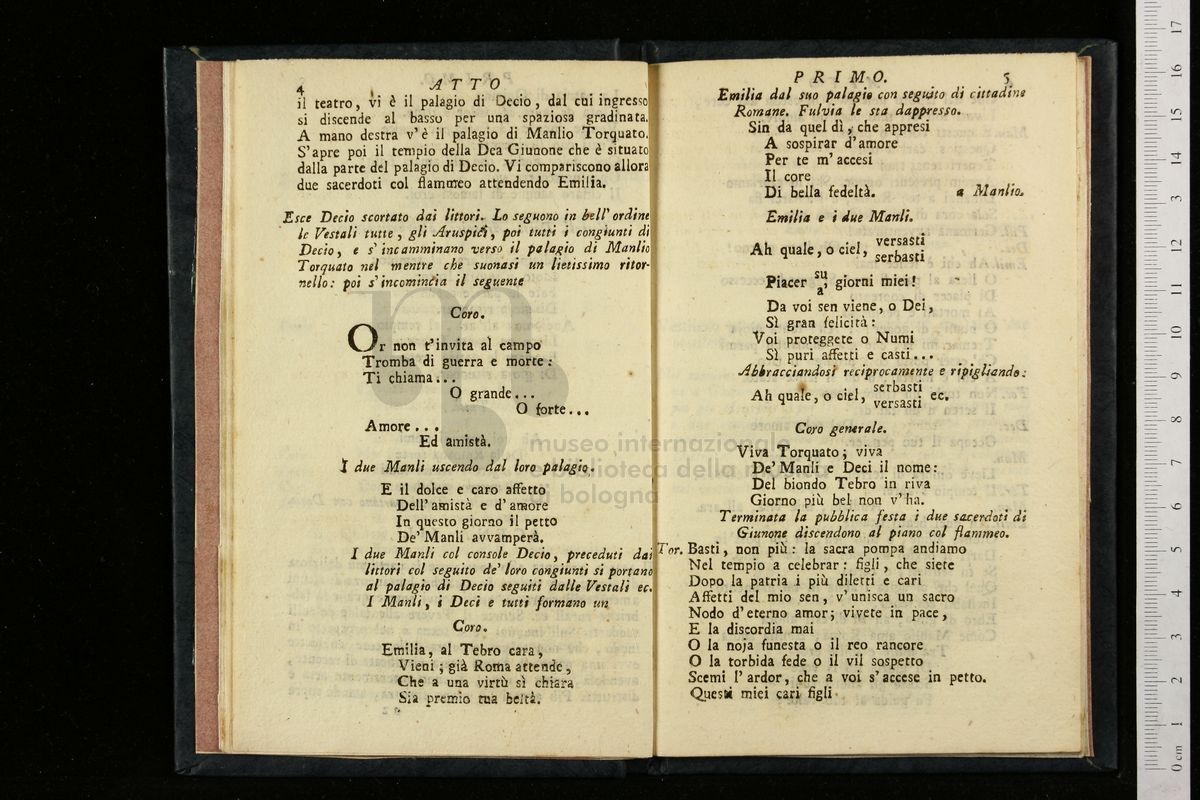 4 ATTO
il teatro, vi è il palagio di Decio, dal cui ingresso
si discende al basso per una spaziosa gradinata.
A mano destra v'è il palagio di Manlio Torquato.
S'apre poi il tempio della Dea Giunone che è situato
dalla parte del palagio di Decio. Vi compariscono allora
due sacerdoti col flammeo attendendo Emilia.
Esce Decio scortato dai littori. Lo seguono in bell' ordine
le Vestali tutte, gli Aruspici, poi tutti i congiunti di
Decio, e s'incamminano verso il palagio di Manlio
Torquato nel mentre che suonasi un lietissimo ritor-
nello: poi s'incomincia il seguente
Coro.
Or non t'invita al campo
Tromba di guerra e morte:
Ti chiama...
O grande...
O forte...
Amore...
Ed amistà.
I due Manli uscendo dal loro palagio.
E il dolce e caro affetto
Dell' amistà e d'amore
In questo giorno il petto
De' Manli avvamperà.
I due Manli col console Decio, preceduti dai
littori col seguito de' loro congiunti si portano
al palagio di Decio seguiti dalle Vestali ec.
I Manli, i Deci e tutti formano un
Coro.
Emilia, al Tebro cara,
Vieni; già Roma attende,
Che a una virtù sì chiara
Sia premio tua beltà.
PRIMO. 5
Emilia dal suo palagio con seguito di cittadine
Romane. Fulvia le sta dappresso.
Sin da quel dì, che appresi
A sospirar d'amore
Per te m'accesi
Il core
Di bella fedeltà. a Manlio.
Emilia e i due Manli.
Ah quale, o ciel, versasti
serbasti
Piacer su, giorni miei!
a
Da voi sen viene, o Dei,
Sì gran felicità:
Voi proteggete o Numi
Sì puri affetti e casti...
Abbracciandosi reciprocamente e ripigliando:
Ah quale, o ciel, serbasti ec.
versasti
Coro generale.
Viva Torquato; viva
De' Manli e Deci il nome:
Del biondo Tebro in riva
Giorno più bel non v'ha.
Terminata la pubblica festa i due sacerdoti di
Giunone discendono al piano col flammeo.
Tor. Basti, non più: la sacra pompa andiamo
Nel tempio a celebrar: figli, che siete
Dopo la patria i più diletti e cari
Affetti del mio sen, v'unisca un sacro
Nodo d'eterno amor; vivete in pace,
E la discordia mai
O la noja funesta o il reo rancore
O la torbida fede o il vil sospetto
Scemi l'ardor, che a voi s'accese in petto.
Questi miei cari figli
museo internazionale
biblioteca della musica
di bologna
0 cm 1 2 3 4 5 6 7 8 9 10 11 12 13 14 15 16 17